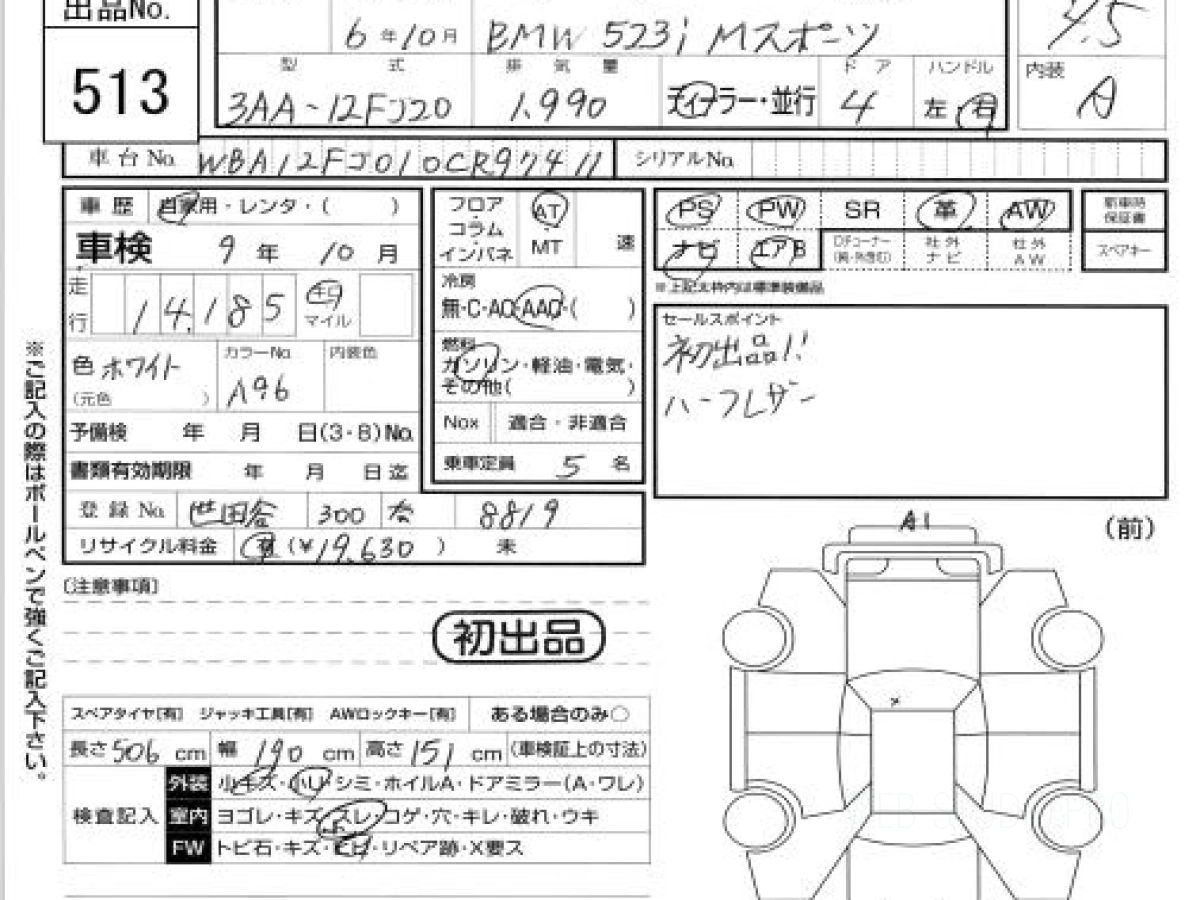 出品No.
513
6年10月 BMW 523i Mスポーツ
型式 排気量 ドア ハンドル 内装
3AA-12FJ20 1,990 ディーラー・並行 4 左 右 A
車台No. WBA12FJ010CR97411 シリアルNo.
車歴 自家用・レンタ・( )
車検 9年10月
走行 14,185 キロ マイル
色 ホワイト カラーNo. A96 内装色
(元色 )
予備検 年 月 日(3・8)No.
書類有効期限 年 月 日迄
登録No. 世田谷 300 8819
リサイクル料金 (¥19,630 ) 未
フロア AT
コラム
インパネ MT 速
冷房
無・C・AC・AAC・( )
燃料
ガソリン・軽油・電気・
その他( )
Nox 適合・非適合
乗車定員 5 名
PS PW SR 革 AW
ナビ エアB 社外ナビ 社外AW
新車時保証書
スペアキー
※上記太枠内は標準装備品
セールスポイント
初出品!!
ハーフレザー
※ご記入の際はボールペンで強くご記入下さい。
〔注意事項〕
初出品
A1
(前)
スペアタイヤ[有] ジャッキ工具[有] AWロックキー[有] ある場合のみ○
長さ506cm 幅190cm 高さ151cm (車検証上の寸法)
検査記入
外装 小キズ・小U・シミ・ホイルA・ドアミラー(A・ワレ)
室内 ヨゴレ・キズ・スレ・コゲ・穴・キレ・破れ・ウキ
FW トビ石・キズ・ヒビ・リペア跡・X要ス